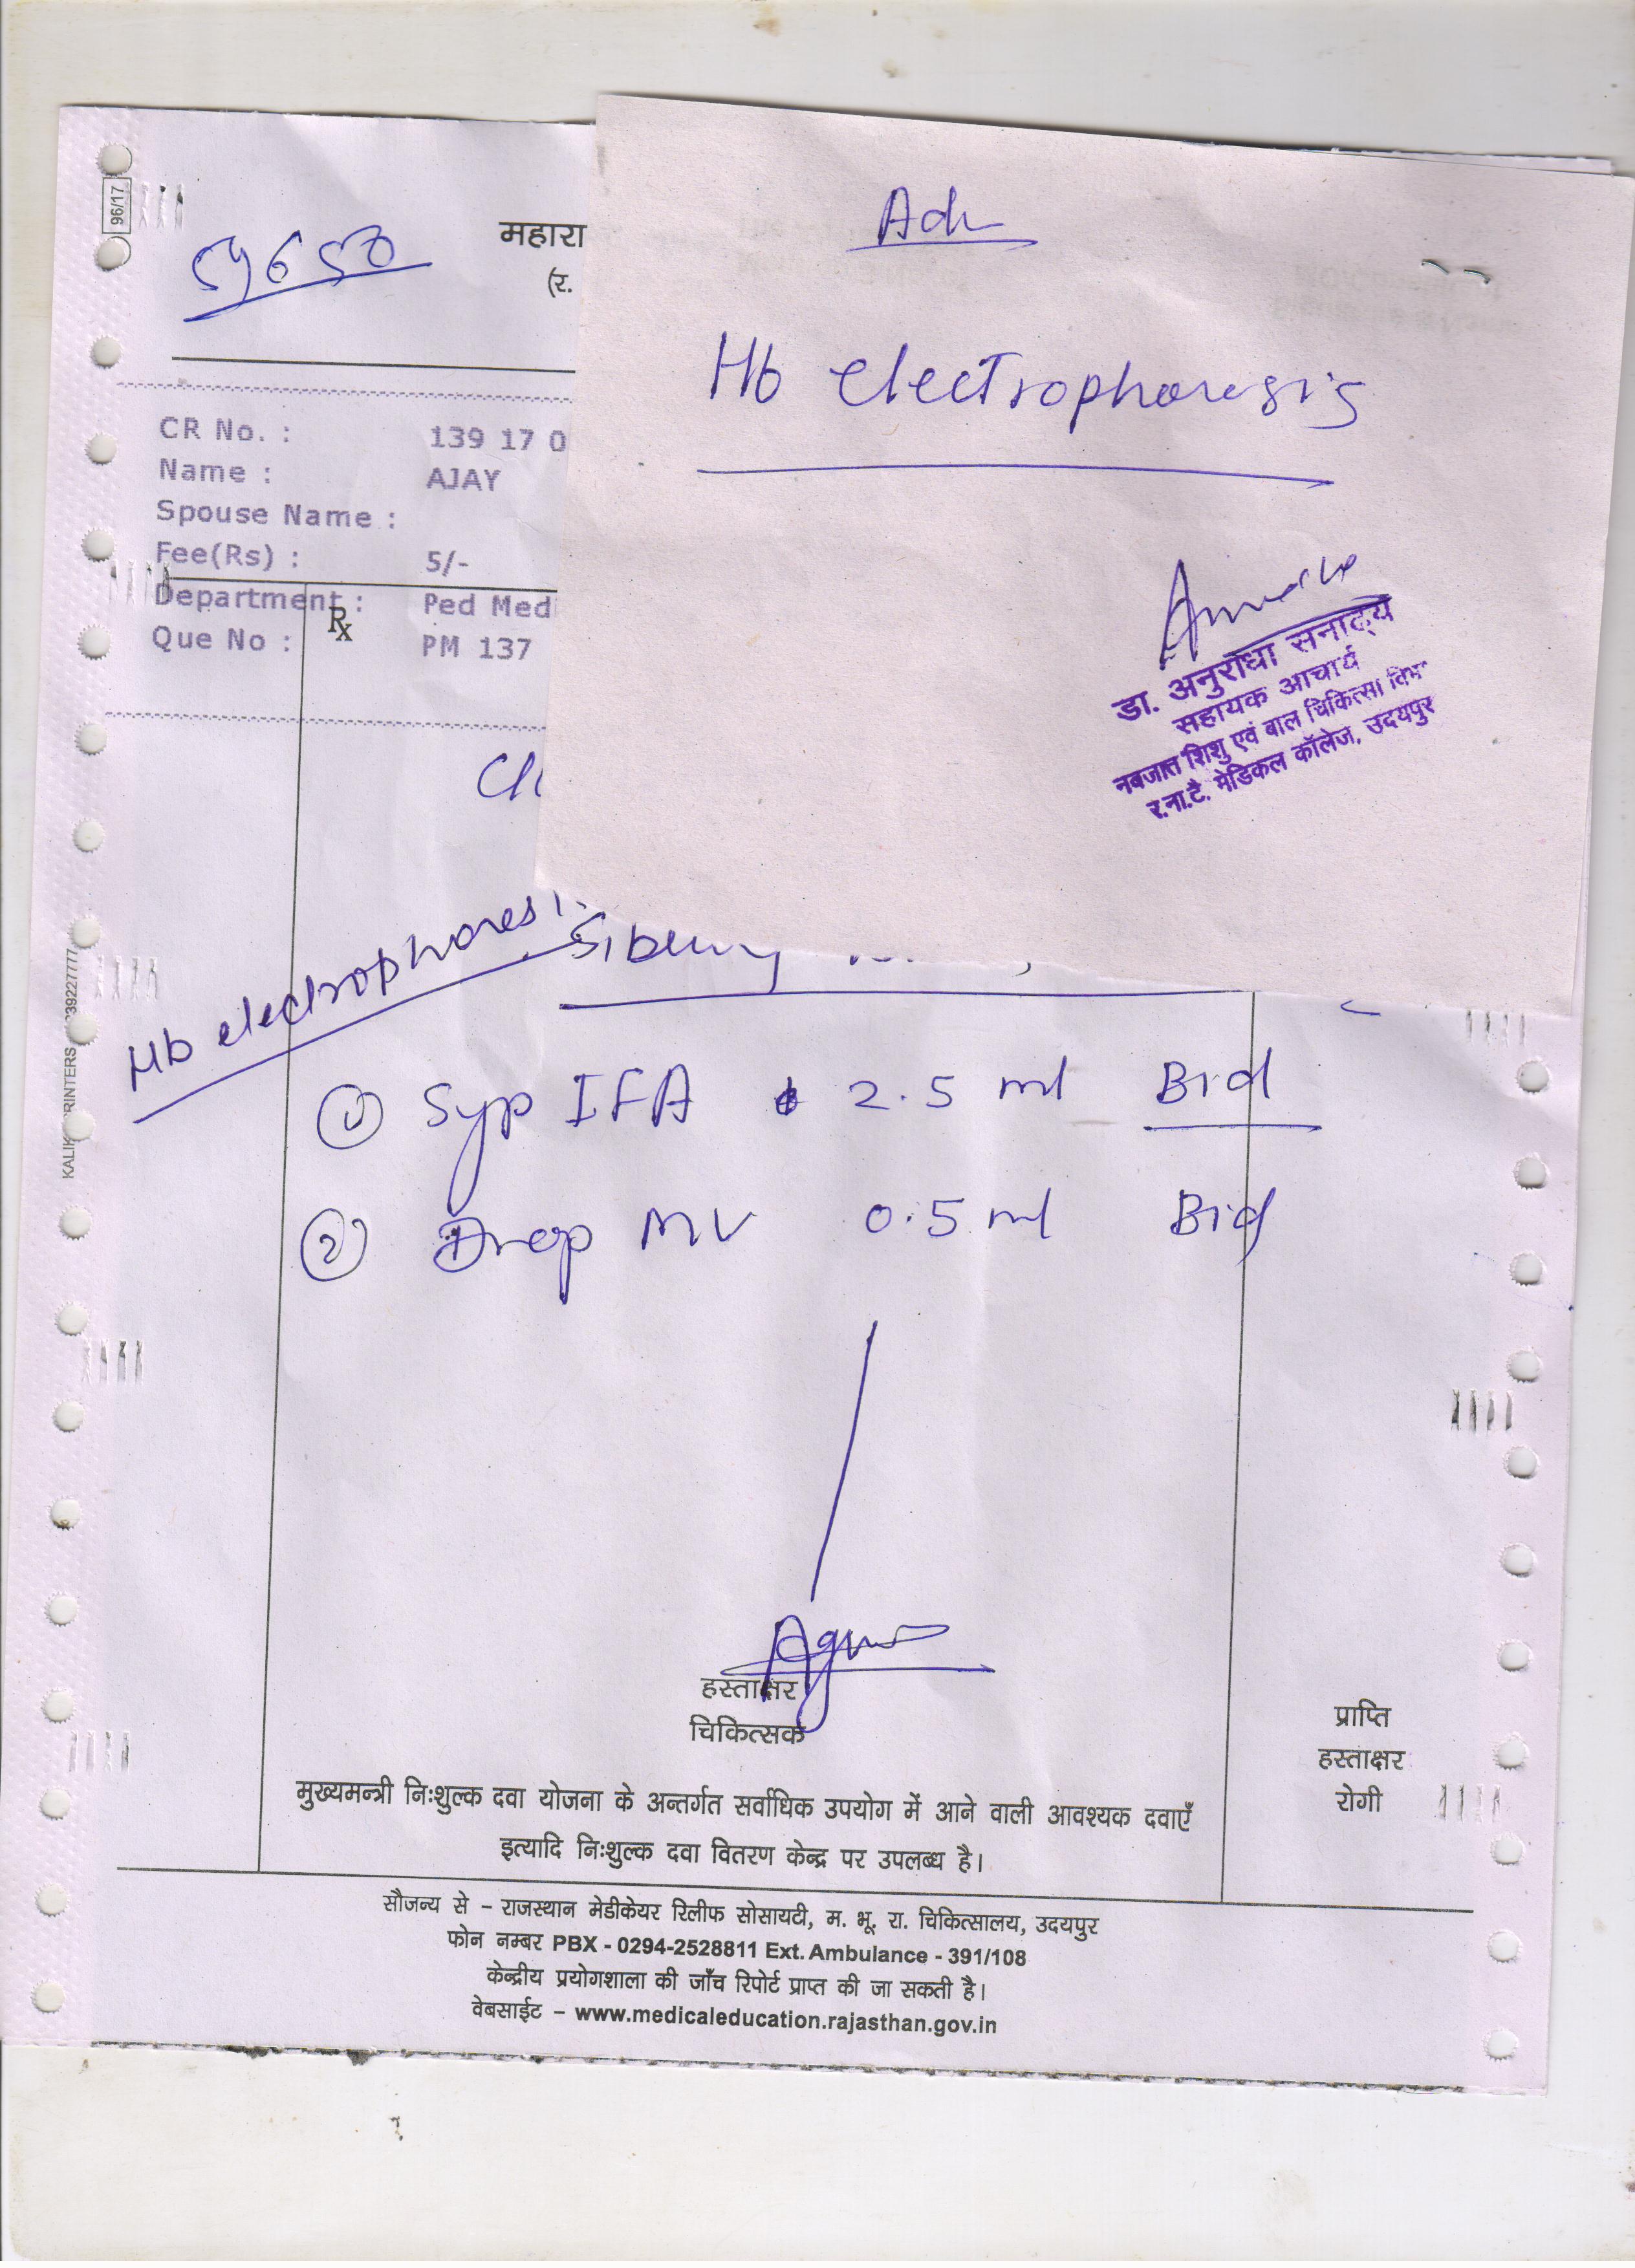 96/17
59650
महारा
(र.
CR No. : 139 17 0
Name : AJAY
Spouse Name :
Fee(Rs) : 5/-
Department : Ped Medi
Que No : PM 137
Rx
Adv
Hb electrophoresis
डा. अनुराधा सनाढ्य
सहायक आचार्य
नवजात शिशु एवं बाल चिकित्सा विभा
र.ना.टै. मेडिकल कॉलेज, उदयपुर
Hb electrophoresi
① Syp IFA 2.5 ml Bid
② Drop MV 0.5 ml Bid
हस्ताक्षर
चिकित्सक
प्राप्ति
हस्ताक्षर
रोगी
मुख्यमन्त्री निःशुल्क दवा योजना के अन्तर्गत सर्वाधिक उपयोग में आने वाली आवश्यक दवाएँ
इत्यादि निःशुल्क दवा वितरण केन्द्र पर उपलब्ध है।
सौजन्य से – राजस्थान मेडीकेयर रिलीफ सोसायटी, म. भू. रा. चिकित्सालय, उदयपुर
फोन नम्बर PBX - 0294-2528811 Ext. Ambulance - 391/108
केन्द्रीय प्रयोगशाला की जाँच रिपोर्ट प्राप्त की जा सकती है।
वेबसाईट – www.medicaleducation.rajasthan.gov.in